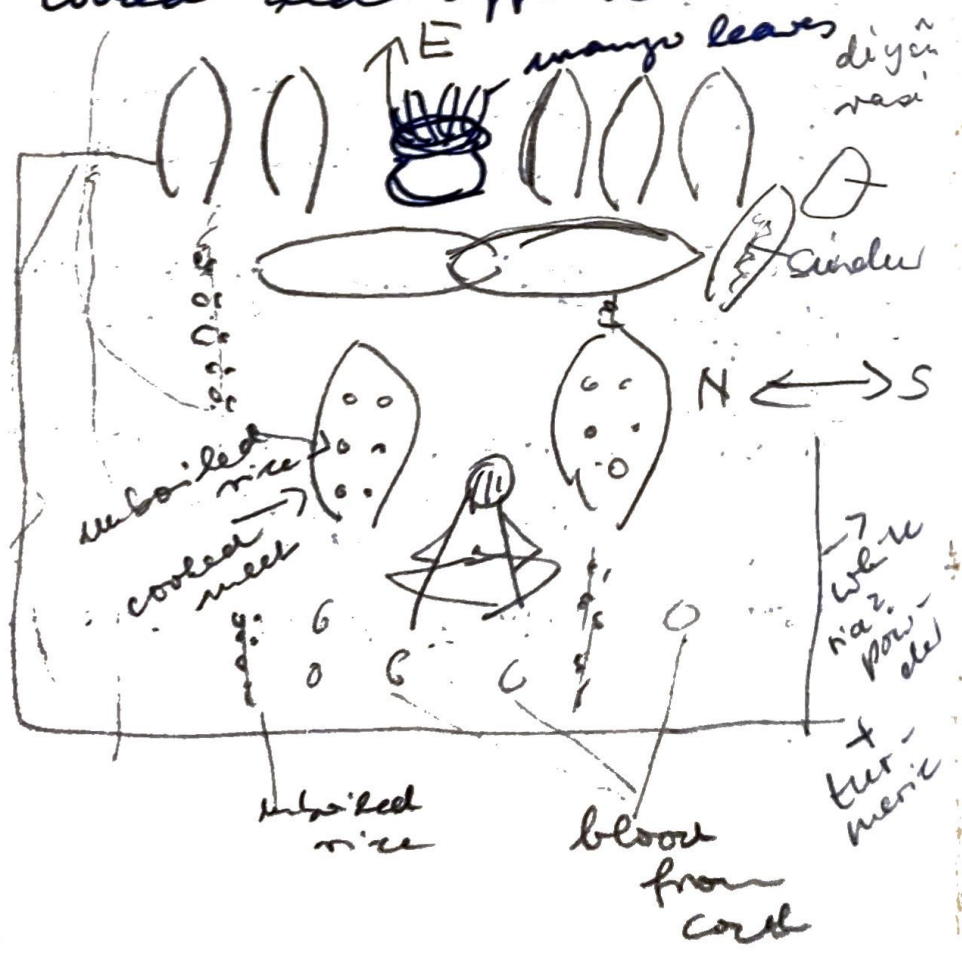 cooked
E
mango leaves
diyañ
rasi
sindur
N S
unboiled
rice
cooked
meat
white
rice
pow-
der
+
tur-
meric
unboiled
rice
blood
from
cock